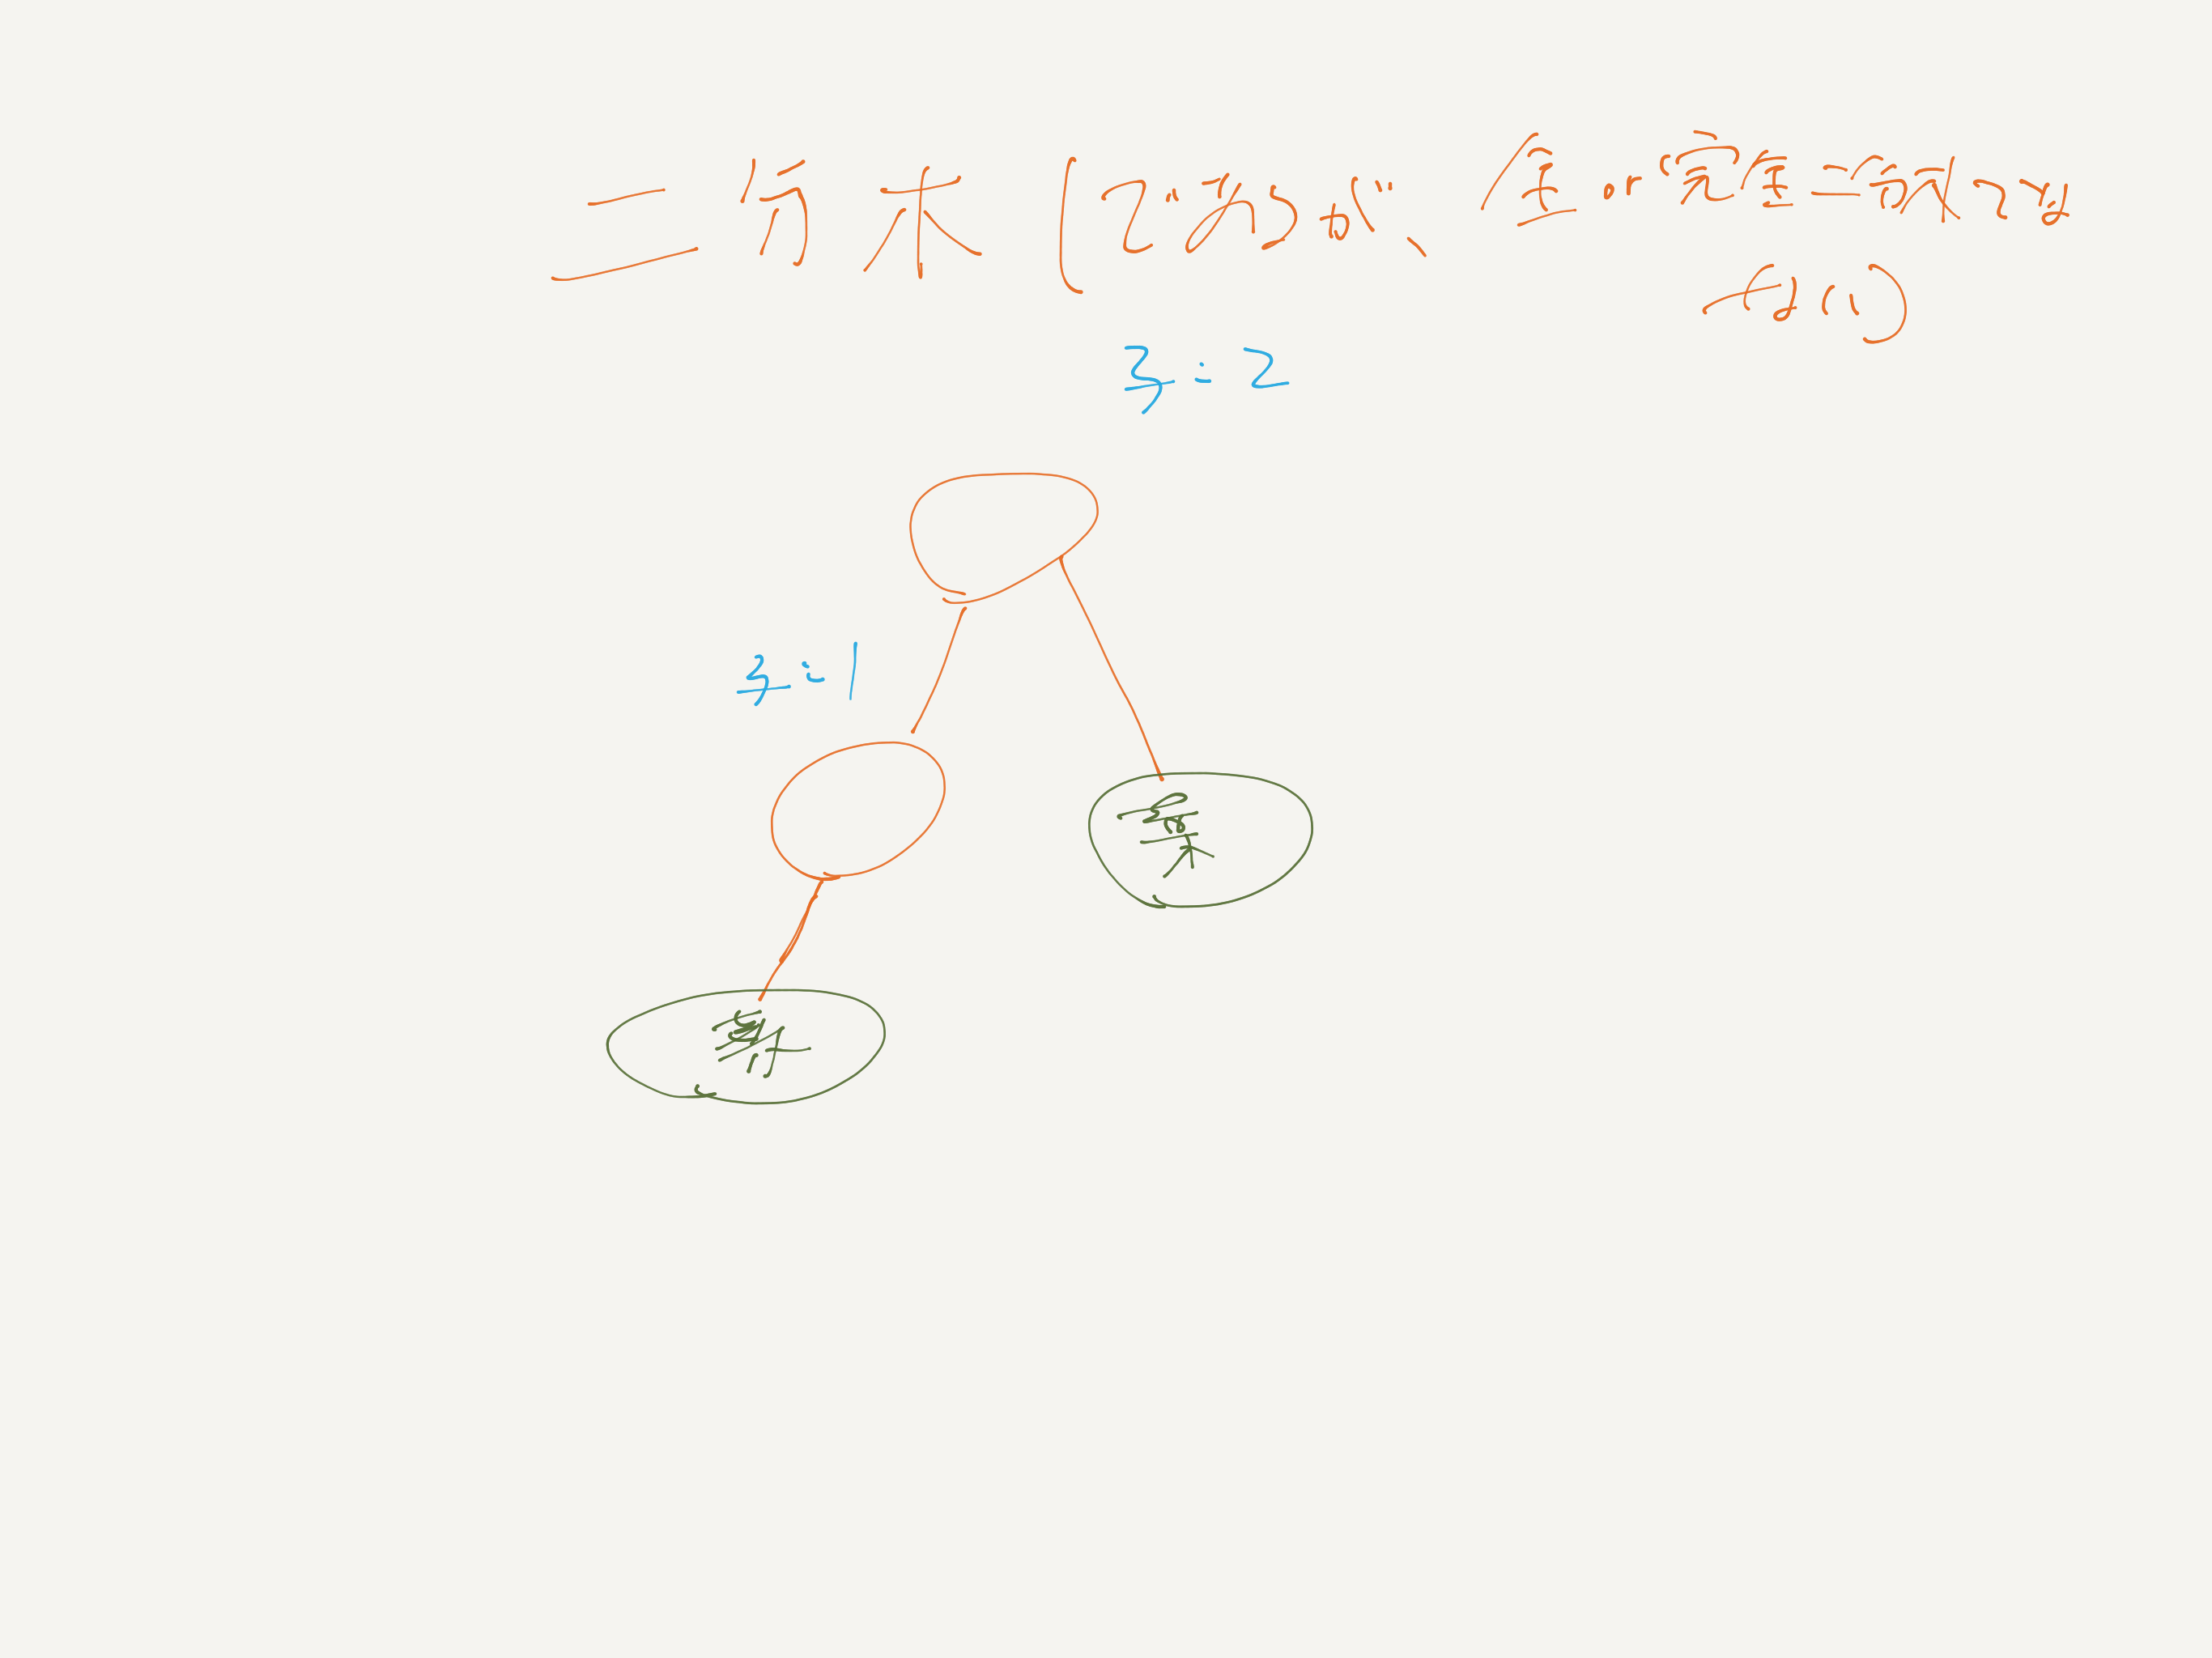 二分木(であるが、全or完全二分木では
ない)
子:2
子:1
葉
葉